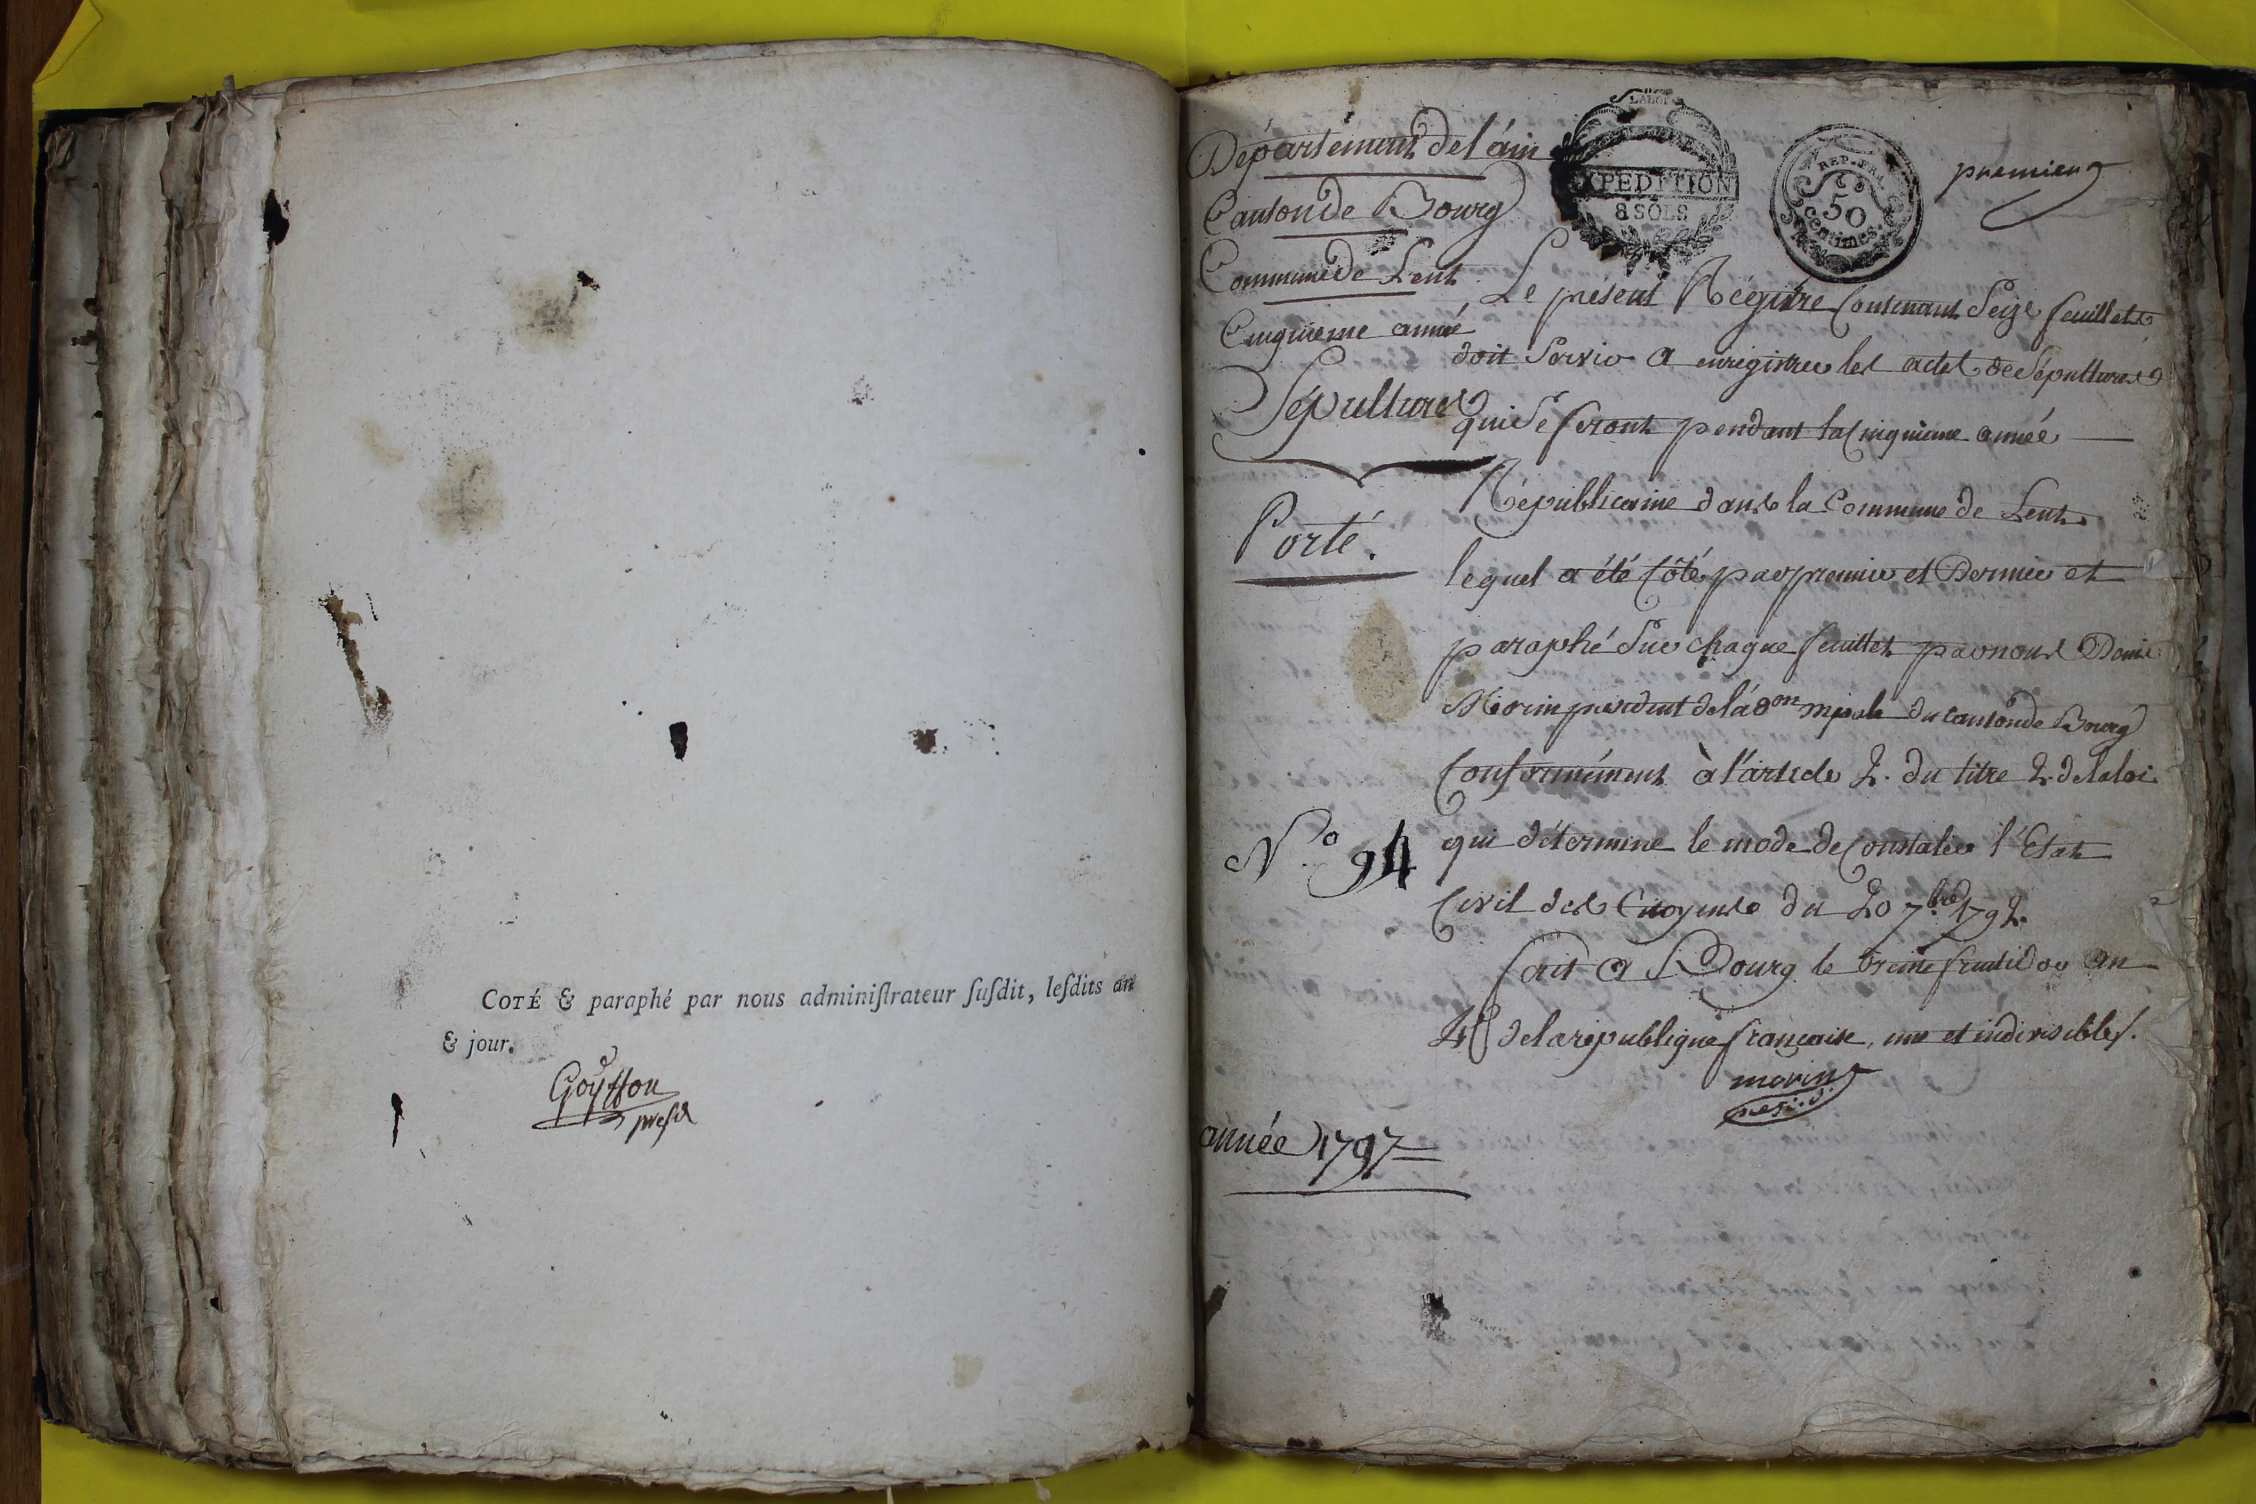 COTÉ & paraphé par nous administrateur susdit, lesdits an
& jour.
Goyffon
presd
LA LOI
EXPEDITION
8 SOLS
REP. FRA.
50
centimes.
premier
Département de l'ain
Canton de Bourg
Commune de Lent
Cinquieme année
Sépultures
Porté.
N.º 94
année 1797
Le présent Régistre Contenant Seize feuillets
doit Servir a enregistrer les actes de Sépultures
qui Se feront pendant la Cinquieme année
Républicaine dans la Commune de Lent
lequel a été Côté par premier et Dernier et
paraphé Sur chaque feuillet par nous Denis
Morin président de l'adon mpale du canton de Bourg
Conformément à l'article 2. du titre 2. de la loi
qui détermine le mode de Constater l'Etat
Civil des Citoyens du 20 7.bre 1792.
fait a Bourg le fructidor an
4e de la république française, une et indivisible.
morin
presid.